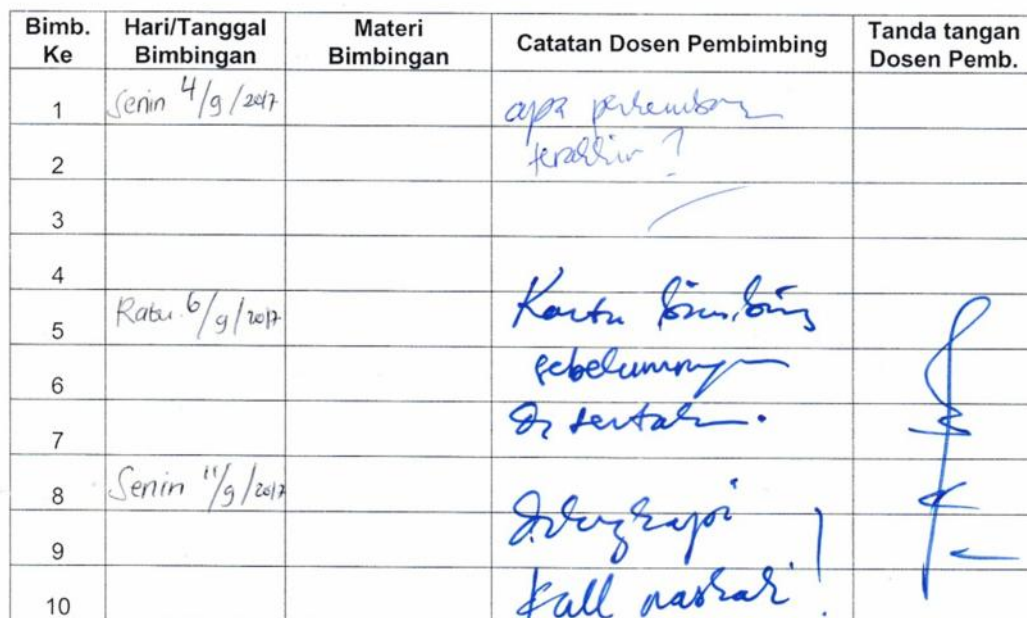 Bimb. Ke Hari/Tanggal Bimbingan Materi Bimbingan Catatan Dosen Pembimbing Tanda tangan Dosen Pemb.
1 Senin 4/9/2017 apa perkembangan
2 terakhir ?
3
4
5 Rabu 6/9/2017 Kartu bimbing
6 sebelumnya
7 disertakan.
8 Senin 11/9/2017 dilengkapi
9
10 full naskah !